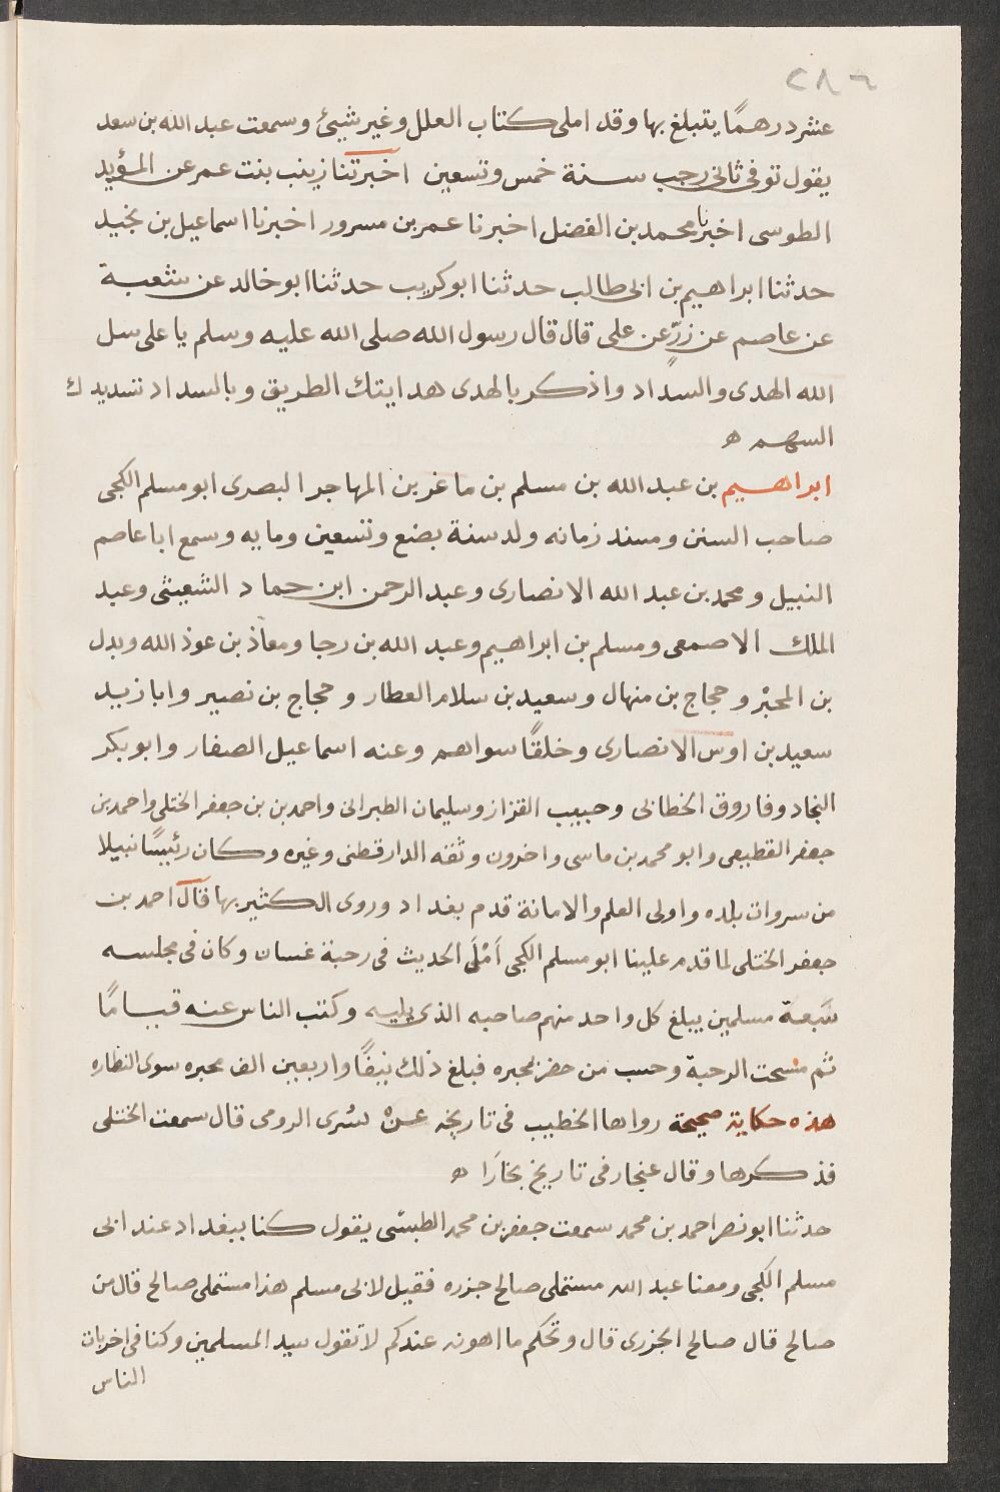 ٢٨٦
عشر درهمًا يتبلغ بها وقد املى كتاب العلل وغير شيئ وسمعت عبد الله بن سعد
يقول توفى ثانى رجب سنة خمس وتسعين اخبرتنا زينب بنت عمر عن المؤيد
الطوسى اخبرنا محمد بن الفضل اخبرنا عمر بن مسرور اخبرنا اسماعيل بن نجيد
حدثنا ابراهيم بن ابى طالب حدثنا ابو كريب حدثنا ابو خالد عن شعبة
عن عاصم عن زرّ عن على قال قال رسول الله صلى الله عليه وسلم يا على سل
الله الهدى والسداد واذكر بالهدى هدايتك الطريق وبالسداد تسديدك
السهم ه
ابراهيم بن عبد الله بن مسلم بن ماغر بن المهاجر البصرى ابو مسلم الكجى
صاحب السنن ومسند زمانه ولد سنة بضع وتسعين ومايه وسمع ابا عاصم
النبيل ومحمد بن عبد الله الانصارى وعبد الرحمن ابن حماد الشعيثى وعبد
الملك الاصمعى ومسلم بن ابراهيم وعبد الله بن رجا ومعاذ بن عوذ الله وبدل
بن المحبر وحجاج بن منهال وسعيد بن سلام العطار وحجاج بن نصير وابا زيد
سعيد بن اوس الانصارى وخلقًا سواهم وعنه اسماعيل الصفار وابو بكر
النجاد وفاروق الخطابى وحبيب القزاز وسليمان الطبرانى واحمد بن بن جعفر الختلى واحمد بن
جعفر القطيعى وابو محمد بن ماسى واخرون وثقه الدارقطنى وغيره وكان رئيسًا نبيلا
من سروات بلده واولى العلم والامانة قدم بغداد وروى الكثير بها قال احمد بن
جعفر الختلى لما قدم علينا ابو مسلم الكجى اَمْلَى الحديث فى رحبة غسان وكان فى مجلسه
سَبعة مسلمين يبلغ كل واحد منهم صاحبه الذى يليه وكتب الناس عنه قيامًا
ثم مسحت الرحبة وحسب من حضر بمحبره فبلغ ذلك نيفًا واربعين الف محبره سوى النظاره
هذه حكاية صحيحة رواها الخطيب فى تاريخه عن بشرى الرومى قال سمعت الختلى
فذكرها وقال غنجار فى تاريخ بخارَا ه
حدثنا ابو نصر احمد بن محمد سمعت جعفر بن محمد الطبسى يقول كنا ببغداد عند ابى
مسلم الكجى ومعنا عبد الله مستملى صالح جزره فقيل لابى مسلم هذا مستملى صالح قال من
صالح قال صالح الجزرى قال وتحكم ما اهونه عندكم لا تقول سيد المسلمين وكنا فى اخريات
الناس